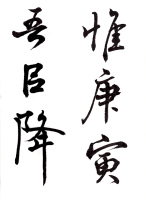 惟庚寅
吾㠯降